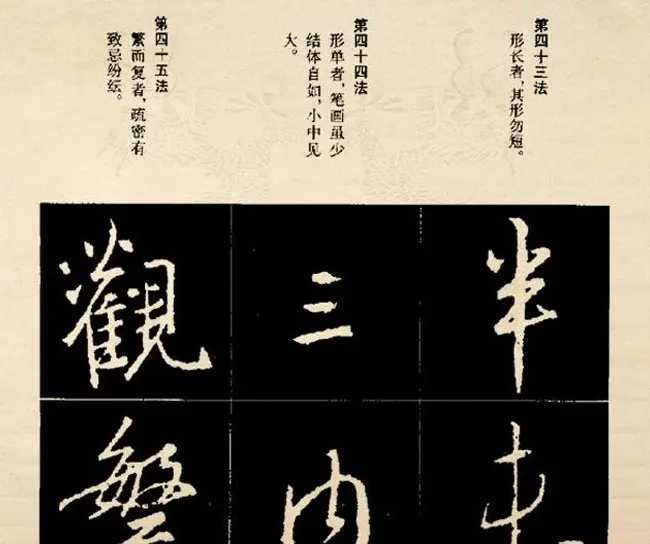 第四十三法
形长者,其形勿短。
第四十四法
形单者,笔画虽少
结体自如,小中见
大。
第四十五法
繁而复者,疏密有
致忌纷纭。
半
三内
觀繁